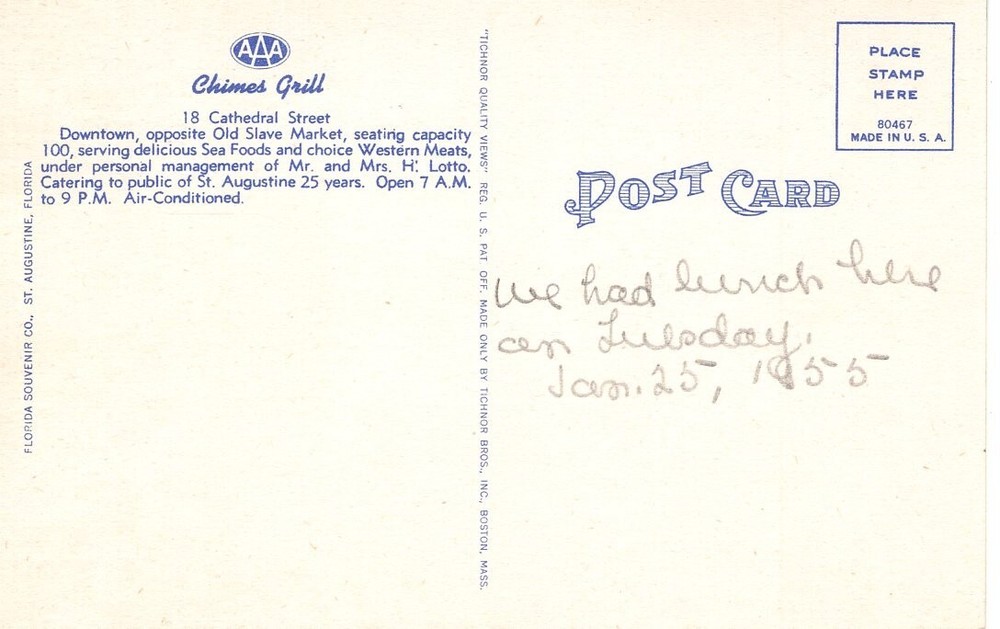 AAA
Chimes Grill
18 Cathedral Street
Downtown, opposite Old Slave Market, seating capacity
100, serving delicious Sea Foods and choice Western Meats,
under personal management of Mr. and Mrs. H. Lotto.
Catering to public of St. Augustine 25 years. Open 7 A.M.
to 9 P.M. Air-Conditioned.
FLORIDA SOUVENIR CO., ST. AUGUSTINE, FLORIDA
"TICHNOR QUALITY VIEWS" REG. U. S. PAT. OFF. MADE ONLY BY TICHNOR BROS., INC., BOSTON, MASS.
PLACE
STAMP
HERE
80467
MADE IN U. S. A.
POST CARD
We had lunch here
on Tuesday,
Jan. 25, 1955